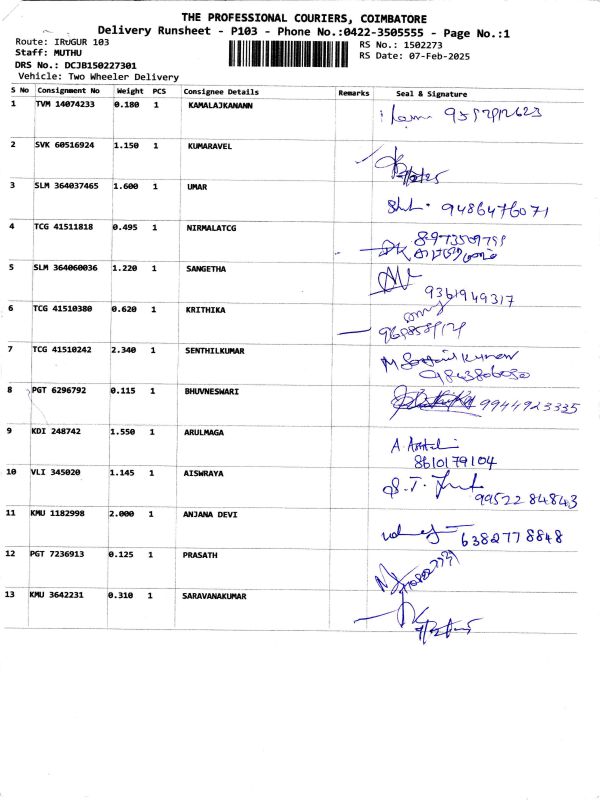 THE PROFESSIONAL COURIERS, COIMBATORE
Delivery Runsheet - P103 - Phone No.:0422-3505555 - Page No.:1
Route: IRUGUR 103
RS No.: 1502273
Staff: MUTHU
RS Date: 07-Feb-2025
DRS No.: DCJB150227301
Vehicle: Two Wheeler Delivery
S No Consignment No Weight PCS Consignee Details Remarks Seal & Signature
1 TVM 14074233 0.180 1 KAMALAJKANANN
2 SVK 60516924 1.150 1 KUMARAVEL
3 SLM 364037465 1.600 1 UMAR 9486476071
4 TCG 41511818 0.495 1 NIRMALATCG
5 SLM 364060036 1.220 1 SANGETHA 9361949317
6 TCG 41510380 0.620 1 KRITHIKA
7 TCG 41510242 2.340 1 SENTHILKUMAR
8 PGT 6296792 0.115 1 BHUVNESWARI 9944923335
9 KDI 248742 1.550 1 ARULMAGA
8610179104
10 VLI 345020 1.145 1 AISWRAYA
9952284843
11 KMU 1182998 2.000 1 ANJANA DEVI 6382778848
12 PGT 7236913 0.125 1 PRASATH
13 KMU 3642231 0.310 1 SARAVANAKUMAR